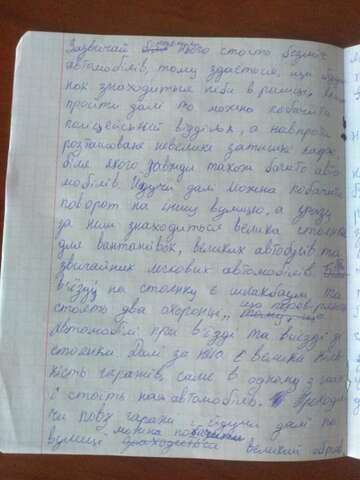 Зазвичай біля нього стоїть безліч
автомобілів, тому здається, що
нок знаходиться ніби в рамці,
пройти далі то можна побачити
поліцейський відділок, а навпроти
розташоване невелике затишне кафе
біля якого завжди також багато авто-
мобілів. Ідучи далі можна побачити
поворот на іншу вулицю, а зразу
за ним знаходиться велика стоянка
для вантажівок, великих автобусів та
звичайних легкових автомобілів.
виїзді на стоянку є шлагбаум та
стоять два охоронці, що перевіряють
Автомобілі при в'їзді та виїзді зі
стоянки. Далі за нею є велика кіль-
кість гаражів, саме в одному з них
і стоїть наш автомобіль. Проходя-
чи повз гаражі ідучи далі по
вулиці можна побачити великий